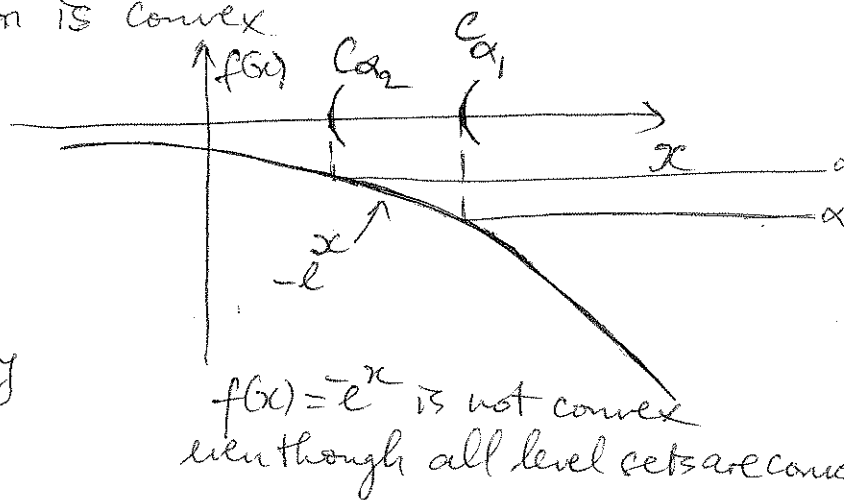 n is convex
f(x) Cα₂ Cα₁
x
α
α
-e^x
y
f(x) = -e^x is not convex
even though all level sets are conv